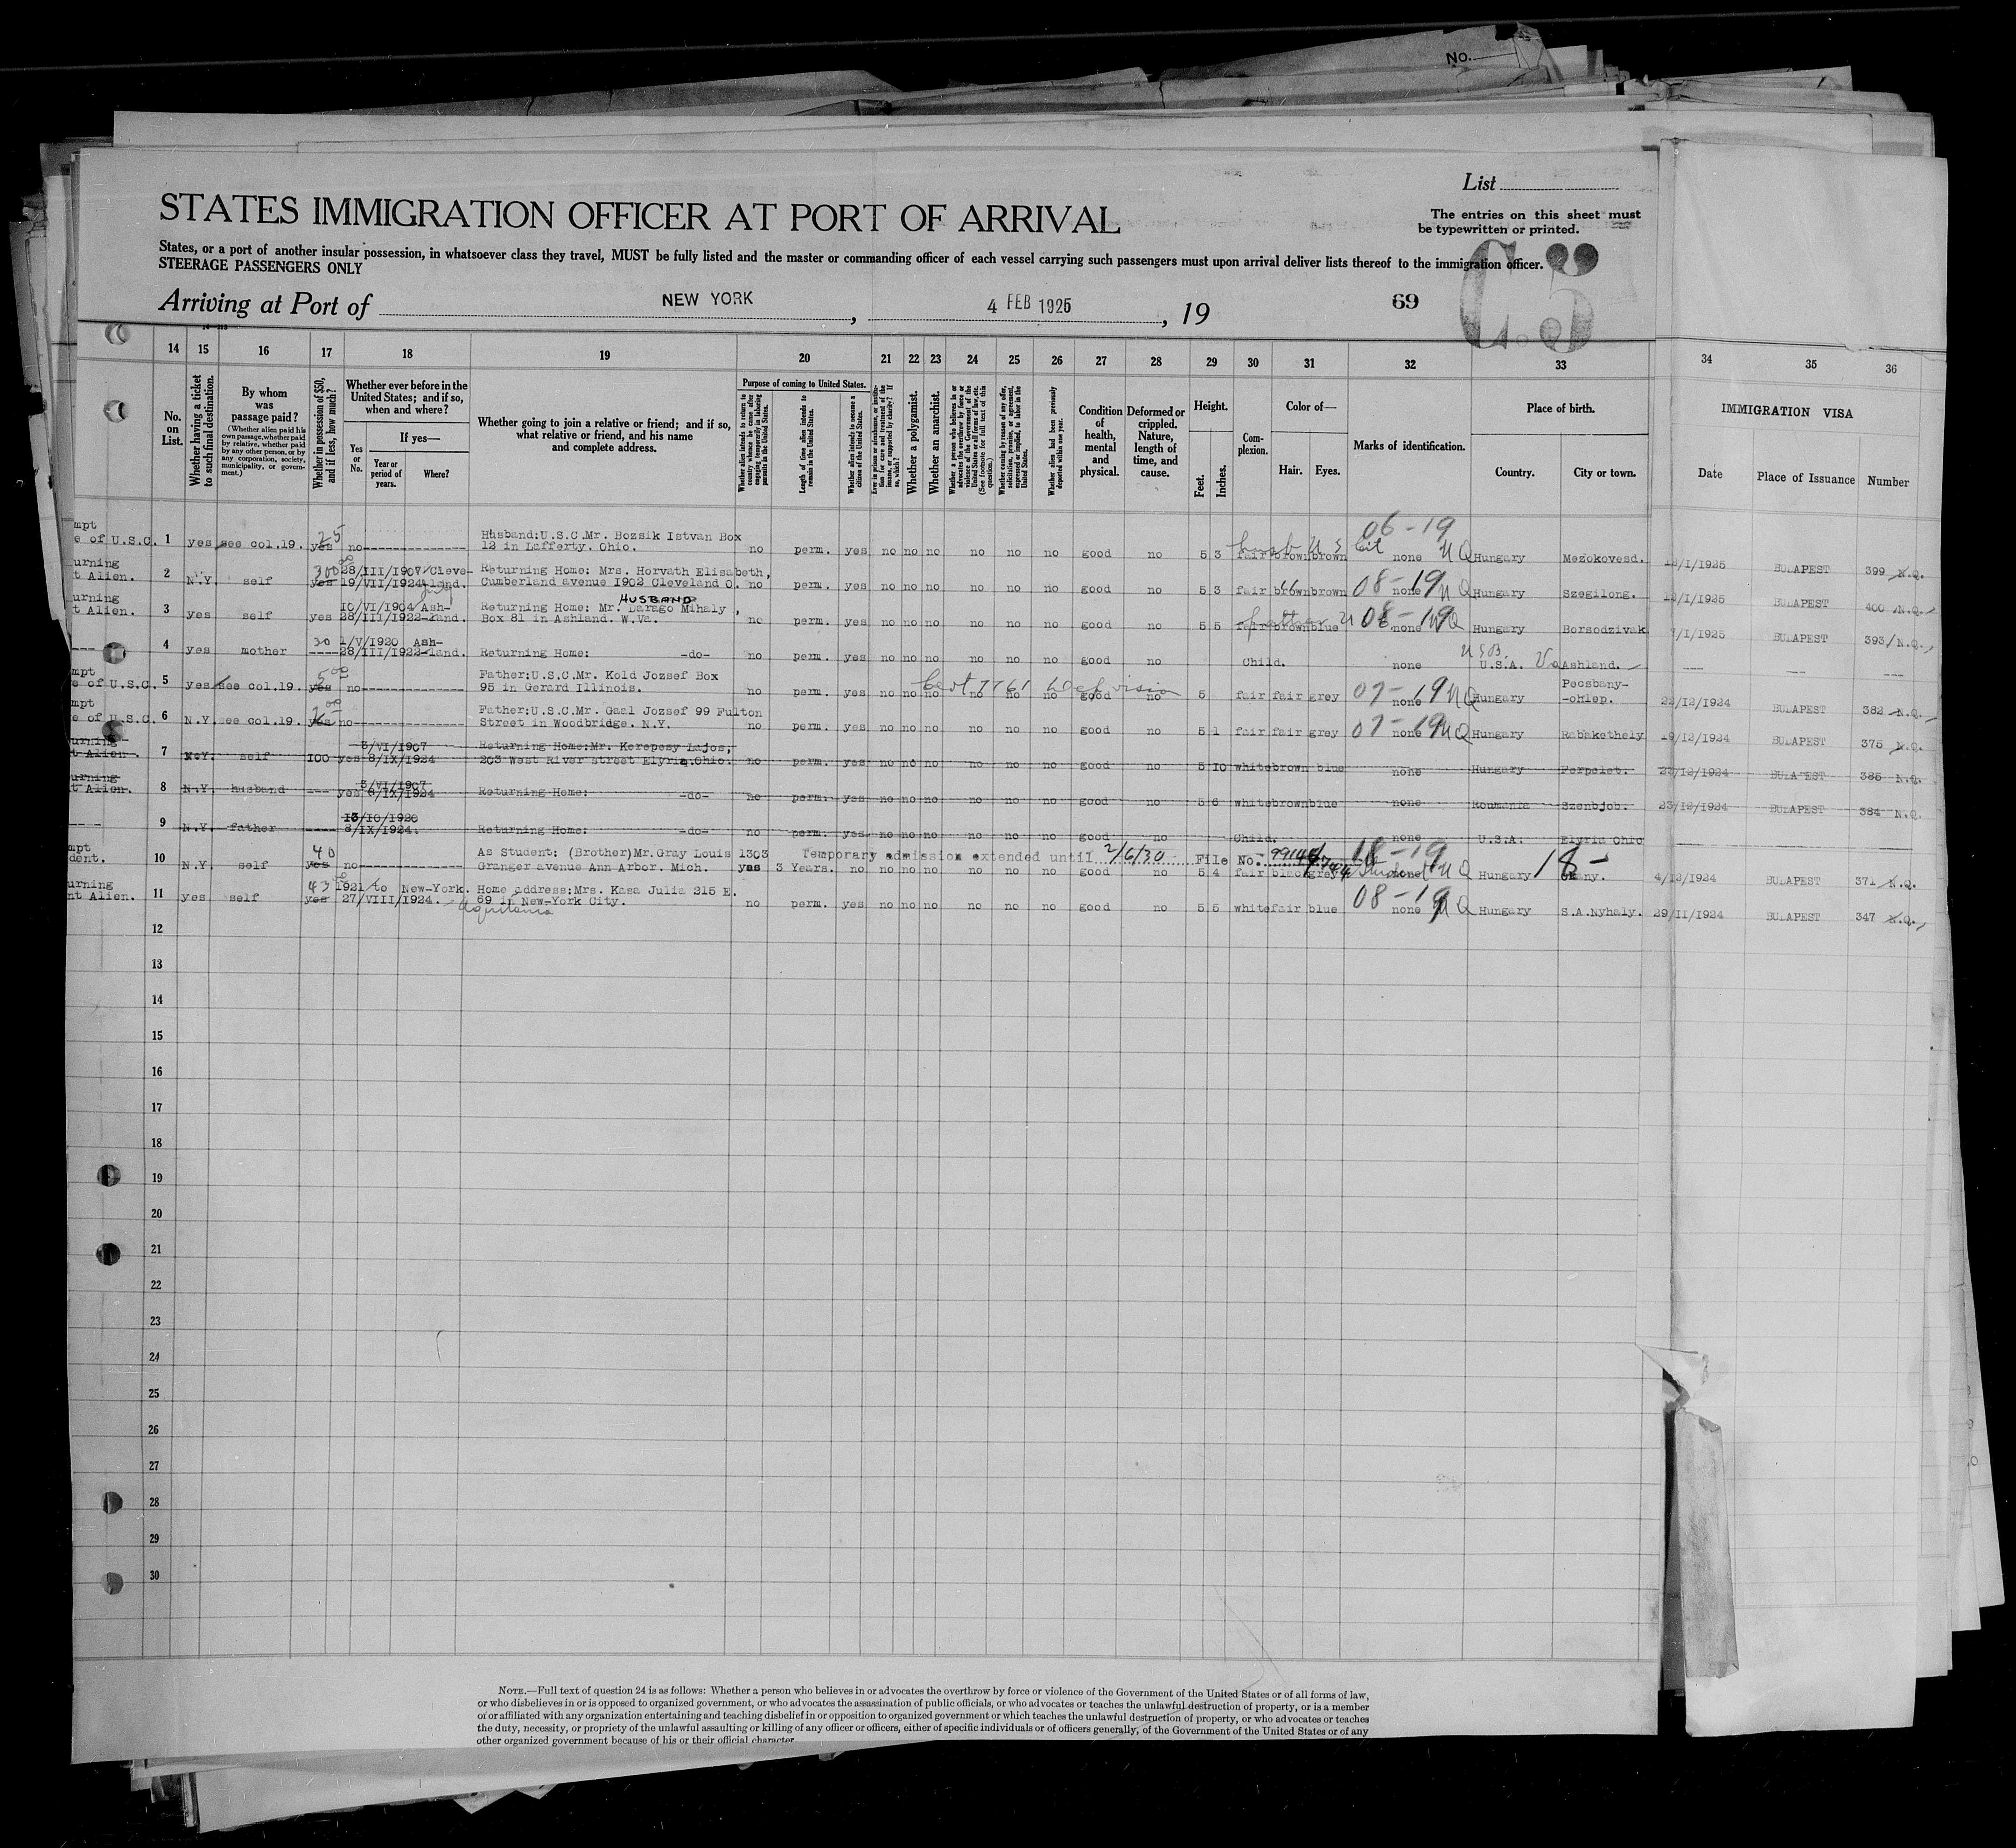 NO.
List
STATES IMMIGRATION OFFICER AT PORT OF ARRIVAL
The entries on this sheet must
be typewritten or printed.
States, or a port of another insular possession, in whatsoever class they travel, MUST be fully listed and the master or commanding officer of each vessel carrying such passengers must upon arrival deliver lists thereof to the immigration officer.
STEERAGE PASSENGERS ONLY
Arriving at Port of NEW YORK, 4 FEB 1925, 19 69
14 15 16 17 18 19 20 21 22 23 24 25 26 27 28 29 30 31 32 33 34 35 36
No. on List.
Whether having a ticket to such final destination.
By whom was passage paid?
(Whether alien paid his own passage, whether paid by relative, whether paid by any other person, or by any corporation, society, municipality, or government.)
Whether in possession of $50, and if less, how much?
Whether ever before in the United States; and if so, when and where?
Yes or No.
If yes—
Year or period of years.
Where?
Whether going to join a relative or friend; and if so, what relative or friend, and his name and complete address.
Purpose of coming to United States.
Whether alien intends to return to country whence he came after engaging temporarily in laboring pursuits in the United States.
Length of time alien intends to remain in the United States.
Whether alien intends to become a citizen of the United States.
Ever in prison or almshouse, or institution for care and treatment of the insane, or supported by charity? If so, which?
Whether a polygamist.
Whether an anarchist.
Whether a person who believes in or advocates the overthrow by force or violence of the Government of the United States or all forms of law, etc. (See footnote for full text of this question.)
Whether coming by reason of any offer, solicitation, promise, or agreement, expressed or implied, to labor in the United States.
Whether alien had been previously deported within one year.
Condition of health, mental and physical.
Deformed or crippled. Nature, length of time, and cause.
Height.
Feet.
Inches.
Complexion.
Color of—
Hair.
Eyes.
Marks of identification.
Place of birth.
Country.
City or town.
IMMIGRATION VISA
Date
Place of Issuance
Number
06-19
mpt Husband:U.S.C.Mr. Bozsik Istvan Box
e of U.S.C. 1 yes see col.19. 25 yes no 12 in Lafferty. Ohio. no perm. yes no no no no no no good no 5 3 fair brown brown none NQ Hungary Mezokovesd. 12/I/1925 BUDAPEST 399 N.Q.
urning 300 28/III/1907 Cleve- Returning Home: Mrs. Horvath Elisabeth,
t Alien. 2 N.Y. self yes 19/VII/1924 land. Cumberland avenue 1902 Cleveland O. no perm. yes no no no no no no good no 5 3 fair brown brown 08-19 none NQ Hungary Szegilong. 12/I/1925 BUDAPEST 400 N.Q.
HUSBAND
urning 10/VI/1904 Ash- Returning Home: Mr. Darago Mihaly,
t Alien. 3 yes self yes 28/III/1922-land. Box 81 in Ashland. W.Va. no perm. yes no no no no no no good no 5 5 fair brown blue 08-19 none NQ Hungary Borsodzivak 7/1/1925 BUDAPEST 393 N.Q.
30 1/V/1920 Ash-
4 yes mother 28/III/1922-land. Returning Home: -do- no perm. yes no no no no no no good no Child. none U.S.A. Va Ashland.
mpt 5 Father:U.S.C.Mr. Kold Jozsef Box Pecsbany-
e of U.S.C. 5 yes see col.19. yes no 95 in Gerard Illinois. no perm. yes no no no no no no good no 5 fair fair grey 07-19 none NQ Hungary -ohlep. 22/12/1924 BUDAPEST 382 N.Q.
mpt Father:U.S.C.Mr. Gaal Jozsef 99 Fulton
e of U.S.C. 6 N.Y. see col.19. yes no Street in Woodbridge. N.Y. no perm. yes no no no no no no good no 5 1 fair fair grey 07-19 none NQ Hungary Rabakethely 19/12/1924 BUDAPEST 375 N.Q.
urning 8/VI/1907 Returning Home:Mr. Kerepesy Lajos,
t Alien. 7 N.Y. self 100 yes 8/IX/1924 203 West River street Elyria.Ohio. no perm. yes no no no no no no good no 5 10 white brown blue none Hungary Perpelet. 23/12/1924 BUDAPEST 385 N.Q.
urning 3/VI/1907
t Alien. 8 N.Y. husband --- yes 8/IX/1924 Returning Home: -do- no perm. yes no no no no no no good no 5 6 white brown blue none Roumania Szenbjob. 23/12/1924 BUDAPEST 384 N.Q.
13/10/1920
9 N.Y. father 8/IX/1924. Returning Home: -do- no perm. yes no no no no no no good no Child. none U.S.A. Elyria Ohio
mpt 40 As Student: (Brother)Mr.Gray Louis 1303 Temporary admission extended until 2/6/30 File No. 18-19
dent. 10 N.Y. self yes no Granger avenue Ann-Arbor. Mich. yes 3 Years. no no no no no no no good no 5 4 fair black grey none NQ Hungary 18- 4/12/1924 BUDAPEST 371 N.Q.
urning 43 1921 to New-York. Home address:Mrs. Kasa Julia 215 E.
nt Alien. 11 yes self yes 27/VIII/1924. Aquitania 69 in New-York City. no perm. yes no no no no no no good no 5 5 white fair blue 08-19 none NQ Hungary S.A.Nyhaly. 29/II/1924 BUDAPEST 347 N.Q.
12
13
14
15
16
17
18
19
20
21
22
23
24
25
26
27
28
29
30
NOTE.—Full text of question 24 is as follows: Whether a person who believes in or advocates the overthrow by force or violence of the Government of the United States or of all forms of law,
or who disbelieves in or is opposed to organized government, or who advocates the assassination of public officials, or who advocates or teaches the unlawful destruction of property, or is a member
of or affiliated with any organization entertaining and teaching disbelief in or opposition to organized government or which teaches the unlawful destruction of property, or who advocates or teaches
the duty, necessity, or propriety of the unlawful assaulting or killing of any officer or officers, either of specific individuals or of officers generally, of the Government of the United States or of any
other organized government because of his or their official character.